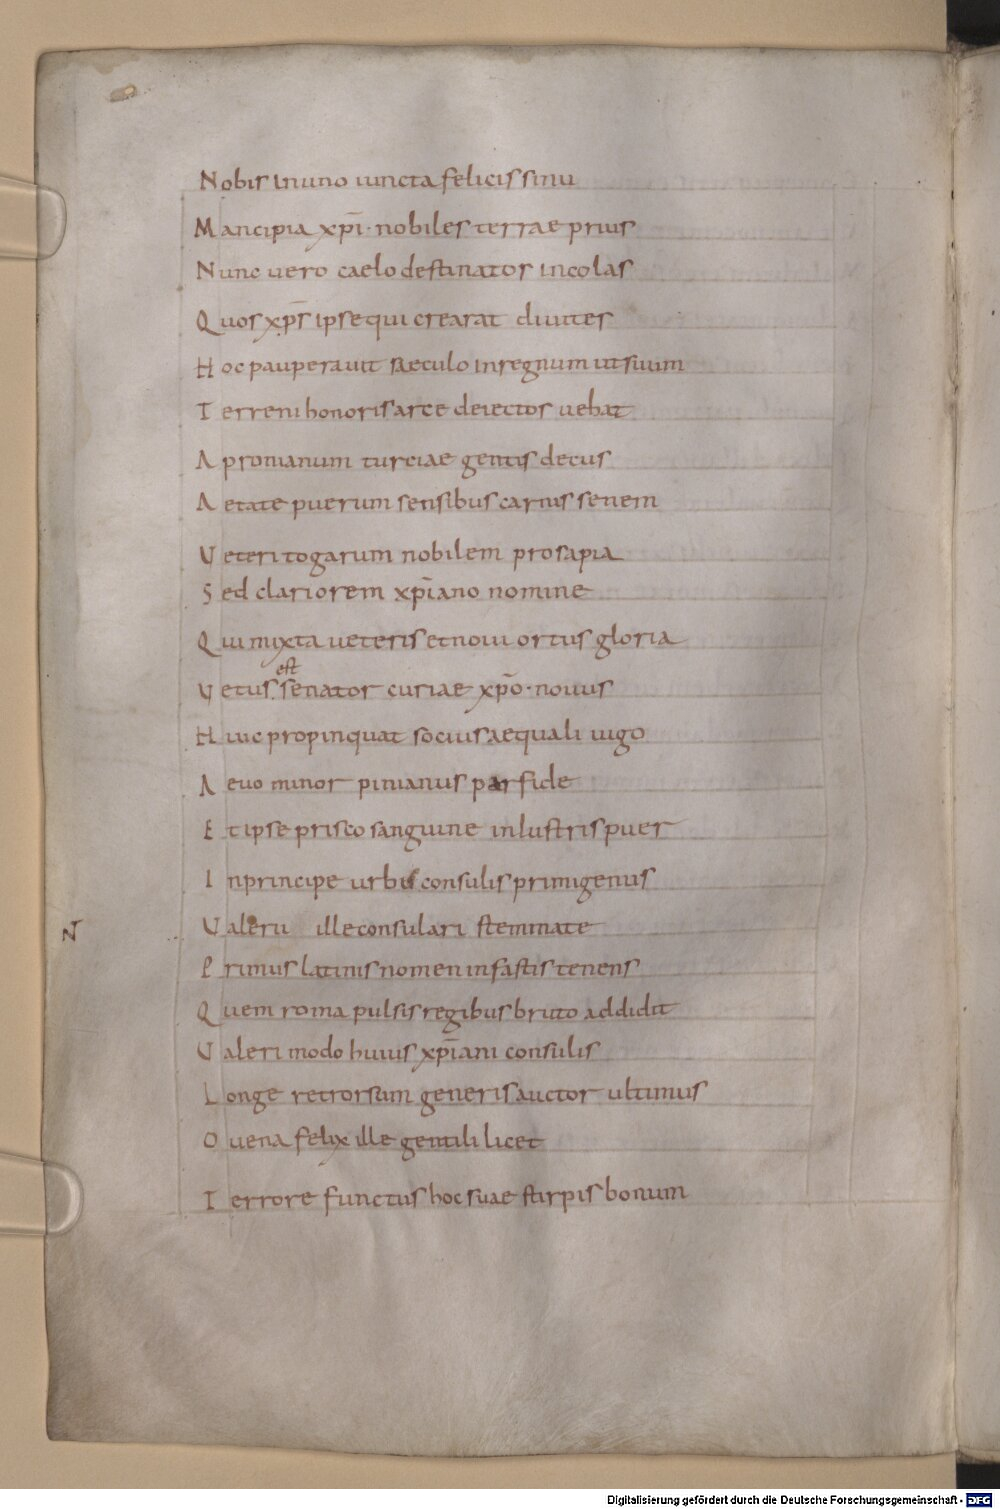 Nobis in uno iuncta felicis sinu
Mancipia xp̄i · nobiles terrae prius
Nunc uero caelo destinator incolas
Quos xp̄s ipse qui crearat diuites
Hoc pauperauit saeculo in regnum ut suum
Terreni honoris arce deiectos uehat
Apronianum turciae gentis decus
Aetate puerum sensibus carnis senem
Veteri togarum nobilem prosapia
Sed clariorem xp̄iano nomine
Qui mixta ueteris et noui ortus gloria
est
Vetus senator curiae xp̄o · nouus
Huic propinquat socius aequali iugo
Aeuo minor pinianus par fide
Et ipse prisco sanguine inlustris puer
In principe urbis consulis primigenus
Valerii ille consulari stemmate
Primus latinis nomen in fastis tenens
Quem roma pulsis regibus bruto addidit
Valeri modo huius xp̄iani consulis
Longe retrorsum generis auctor ultimus
O uena felix ille gentili licet
Terrore functus hoc suae stirpis bonum
Digitalisierung gefördert durch die Deutsche Forschungsgemeinschaft - DFG